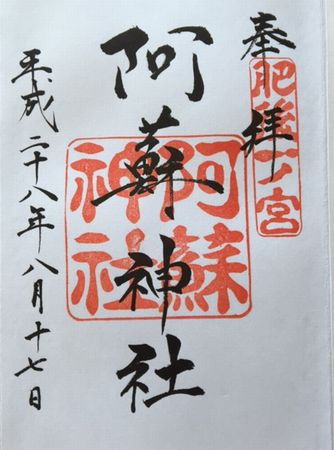 奉拝
肥後一ノ宮
阿蘇神社
阿蘇神社
平成二十八年八月十七日